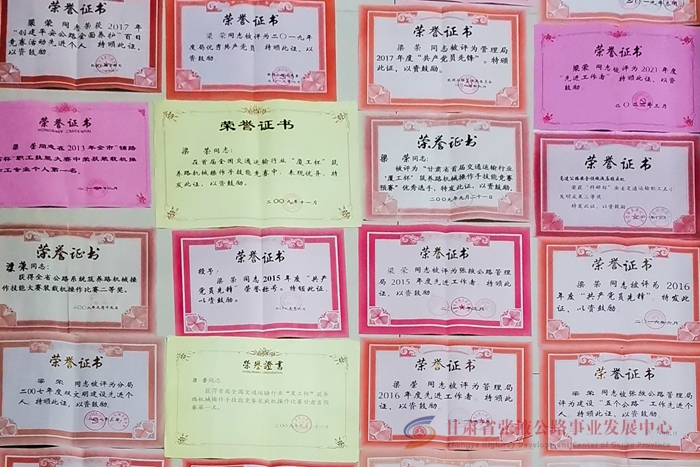 梁 荣 同志荣获 2017 年
“创建平安公路全面养护” 百日
竞赛活动先进个人 特颁此证,
以资鼓励。
荣誉证书
梁荣同志被评为二〇一九年
度局优秀共产党员 特颁此证,
以资鼓励。
荣誉证书
梁 荣 同志被评为管理局
2017 年度“共产党员先锋”。特颁
此证、以资鼓励。
荣誉证书
梁荣 同志被评为 2021 年度
“先进工作者” 特颁此证, 以资
鼓励。
二〇二二年三月
荣誉证书
梁 荣同志在2013年全市“铺路
杯”职工技能大赛中荣获装载机操
作工专业个人第一名。
荣誉证书
梁 荣同志:
在首届全国交通运输行业“厦工杯”筑
养路机械操作手技能竞赛中, 表现优异, 特
发此证, 以资鼓励。
二〇〇九年十一月
荣誉证书
梁 荣 同志:
被评为“甘肃省首届交通运输行业
“厦工杯”筑养路机械操作手技能竞赛
预赛” 优秀选手, 特发此证, 以资鼓励。
二〇〇九年九月二十一日
荣誉证书
特发此证, 以资鼓励。
荣誉证书
梁荣同志:
获得全省公路系统筑养路机械操
作技能大赛装载机操作比赛二等奖。
荣誉证书
授予:
梁 荣 同志 2015 年度“共产
党员先锋” 荣誉称号。特颁此证,
以资鼓励。
荣誉证书
梁 荣 同志被评为张掖公路管理
局 2015 年度先进工作者 特颁此
证、以资鼓励。
荣誉证书
梁 荣 同志被评为 2016
年度“共产党员先锋” 特颁此
证、以资鼓励。
荣誉证书
梁 荣 同志被评为分局
二〇〇七年度双文明建设先进个
人, 特颁此证, 以资鼓励。
荣誉證書
梁 荣同志:
获得首届全国交通运输行业“厦工杯”筑养
路机械操作手技能竞赛装载机操作比赛甘肃省预
赛第一名。
荣誉证书
梁 荣 同志被评为管理局
2016 年度先进工作者, 特颁此
证、以资鼓励。
荣誉证书
梁 荣 同志被评为张掖公路管
理局建设“五个公路”工作先进个
人, 特颁此证, 以资鼓励。
甘肃省张掖公路事业发展中心
Zhangye Highway Development Center of Gansu Province